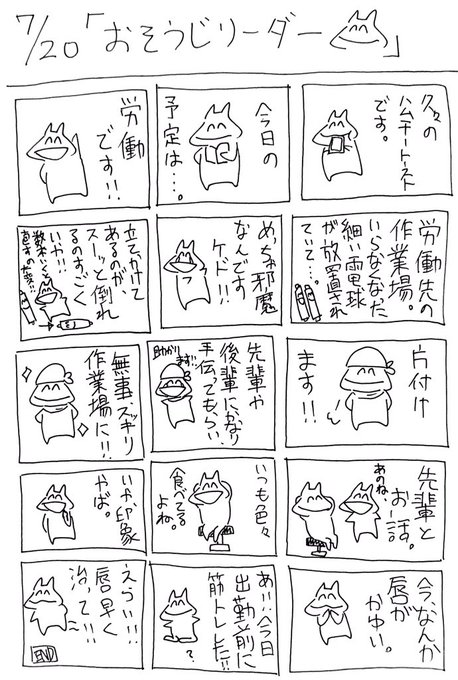 7/20「おそうじリーダー」
久々の
ハムチートースト
です。
今日の
予定は…。
労働
です!!
労働先の
作業場。
いらなくなった
細い電球
が放置され
ていて…。
めっちゃ邪魔
なんです
ケド!!
立てかけて
あるのが、
スーッと倒れ
るのすごく
いや!!
片付け
ます!!
先輩や
後輩にかなり
手伝ってもらい、
助かります!!
無事、スッキリ
作業場に!!
先輩と
お話。
あのね、
いつも色々
食べてる
よね。
いや印象
やば。
今、なんか
唇が
かゆい。
あ!!今日
出勤前に
筋トレした!!
?
えらい!!
唇早く
治って!!
END